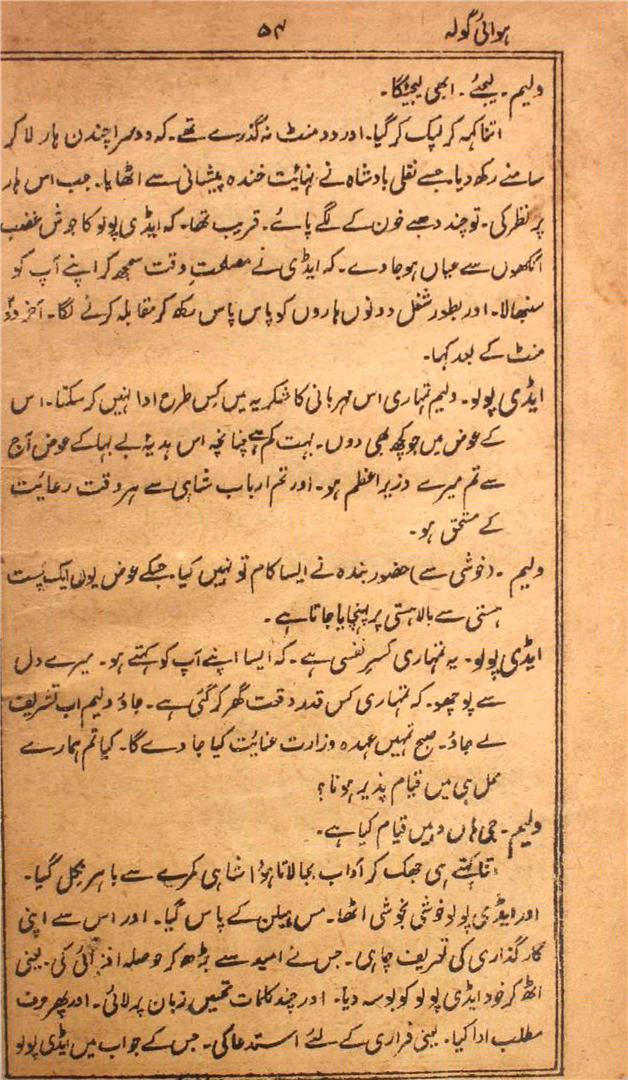 ہوائی گولہ
۵۴
ولیم۔ لیجئے۔ ابھی لیجئیگا۔
اتنا کہہ کر لپک کر گیا۔ اور دو منٹ نہ گذرے تھے۔ کہ دوسرا چندن ہار لا کر
سامنے رکھدیا۔ جسے نقلی بادشاہ نے نہائت خندہ پیشانی سے اٹھایا۔ جب اس ہار
پر نظر کی۔ تو چند دھبے خون کے لگے پائے۔ قریب تھا۔ کہ ایڈی پولو کا جوش غضب
آنکھوں سے عیاں ہو جا دے۔ کہ ایڈی نے مصلحتِ وقت سمجھ کر اپنے آپ کو
سنبھالا۔ اور بطور شغل دونوں ہاروں کو پاس پاس رکھ کر مقابلہ کرنے لگا۔ آخر دو
منٹ کے بعد کہا۔
ایڈی پولو۔ ولیم تمہاری اس مہربانی کا شکریہ میں کس طرح ادا نہیں کر سکتا۔ اس
کے عوض میں جو کچھ بھی دوں۔ بہت کم ہے چنانچہ اس ہدیۂ بے بہا کے عوض آج
سے تم میرے وزیر اعظم ہو۔ اور تم ارباب شاہی سے ہر وقت رعائت
کے مستحق ہو۔
ولیم۔ (خوشی سے) حضور بندہ نے ایسا کام تو نہیں کیا۔ جسکے عوض یوں ایک پست
ہستی سے بالا ہستی پر پہنچایا جاتا ہے۔
ایڈی پولو۔ یہ تمہاری کسر نفسی ہے۔ کہ ایسا اپنے آپ کو کہتے ہو۔ میرے دل
سے پوچھو۔ کہ تمہاری کس قدر وقعت گھر کر گئی ہے۔ جاؤ ولیم اب تشریف
لے جاؤ۔ صبح تمہیں عہدہ وزارت عنائت کیا جا دے گا۔ کیا تم ہمارے
محل ہی میں قیام پذیر ہونا؟
ولیم۔ جی ہاں وہیں قیام کیا ہے۔
اتنا کہتے ہی جھک کر آداب بجا لاتا ہوُا شاہی کمرے سے باہر نکل گیا۔
اور ایڈی پولو خوشی بخوشی اٹھا۔ مس ہیلن کے پاس گیا۔ اور اس سے اپنی
کارگذاری کی تعریف چاہی۔ جس نے امید سے بڑھ کر حوصلہ افزائی کی۔ یعنی
اٹھ کر خود ایڈی پولو کو بوسہ دیا۔ اور چند کلمات تحسین زبان پر لائی۔ اور پھر حرف
مطلب ادا کیا۔ یعنی فراری کے لئے استدعا کی۔ جس کے جواب میں ایڈی پولو